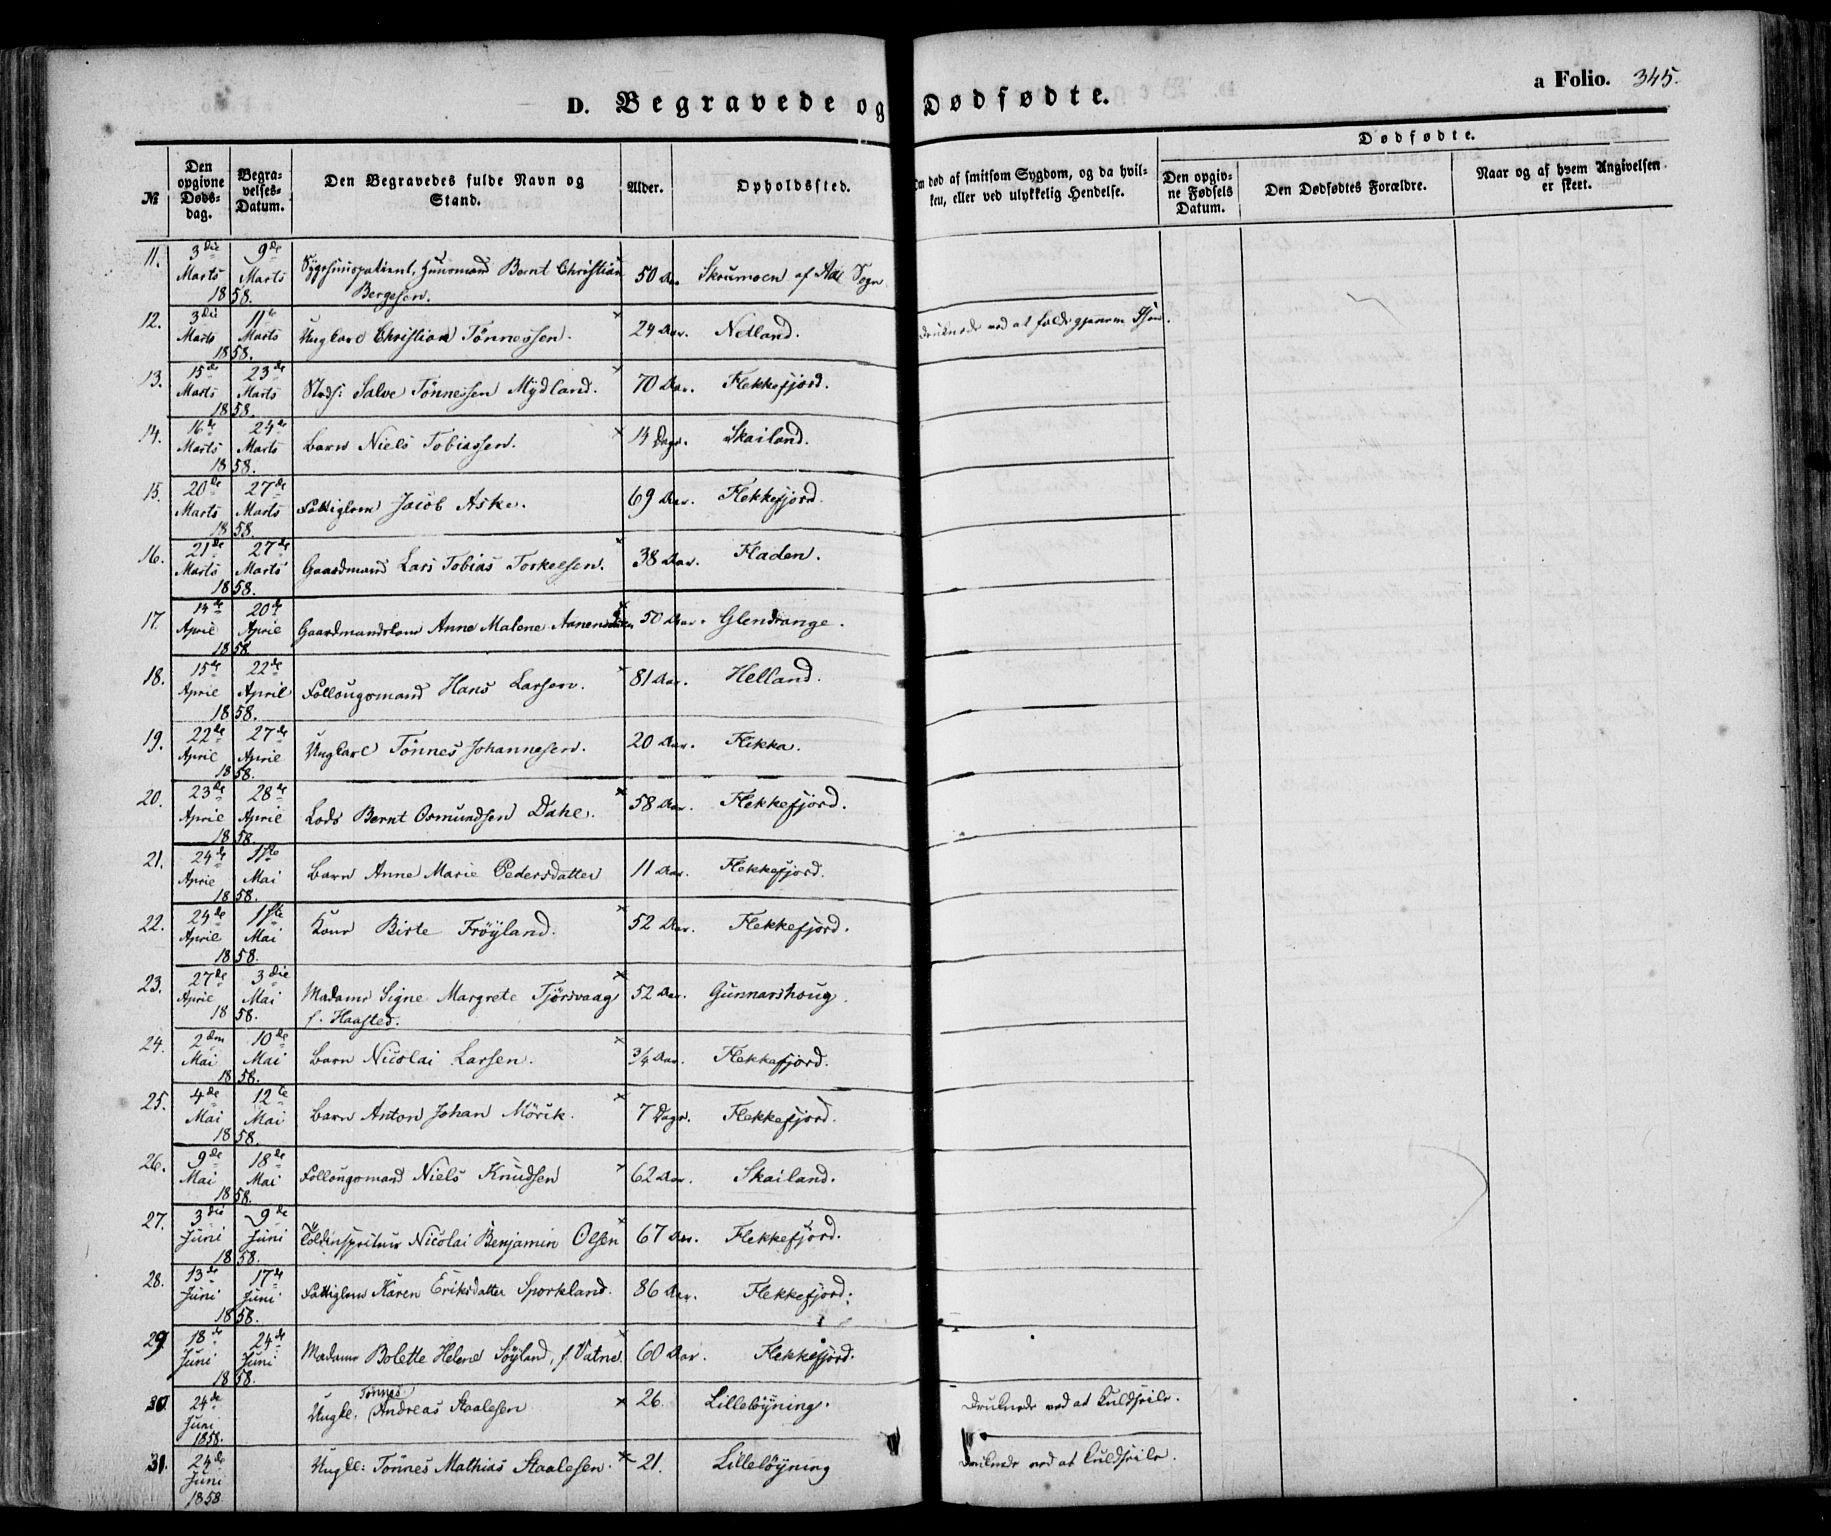 a Folio. 345.
D. Begravede og Dødfødte.
Dødfødte.
№
Den opgivne Døds-dag.
Begra-velses-Datum.
Den Begravedes fulde Navn og Stand.
Alder.
Opholdssted.
Om død af smitsom Sygdom, og da hvil-ken, eller ved ulykkelig Hendelse.
Den opgiv-ne Fødsels Datum.
Den Dødfødtes Forældre.
Naar og af hvem Angivelsen er skeet.
11. 3die Marts 9de Marts 1858. Bernt Christian Bergesen. 50 Aar. Skrumoen af Sogn
12. 3die Marts 11te Marts 1858. Ungkarl Christian Tönnessen. × 24 Aar. Netland. druknede ved at falde gjennem Isen.
13. 15de Marts 23de Marts 1858. Salve Tönnessen Mydland. × 70 Aar. Flekkefjord.
14. 16de Marts 24de Marts 1858. Barn Niels Tobiassen. × 14 Dage. Skailand.
15. 20de Marts 27de Marts 1858. Fattiglem Jacob Aske. 69 Aar. Flekkefjord.
16. 21de Marts 27de Marts 1858. Gaardmand Lars Tobias Torkelsen. × 38 Aar. Fladen.
17. 14de April 20de April 1858. Gaardmandskone Anne Malene × 50 Aar. Glendrange.
18. 15de April 22de April 1858. Follougsmand Hans Larsen. × 81 Aar. Helland.
19. 22de April 27de April 1858. Ungkarl Tönnes Johannesen. × 20 Aar. Flikka.
20. 23de April 28de April 1858. Lods Bernt Osmundsen Dahl. × 58 Aar. Flekkefjord.
21. 24de April 1ste Mai 1858. Barn Anne Marie Pedersdatter 11 Aar. Flekkefjord.
22. 24de April 1ste Mai 1858. Kone Birte Fröyland. × 52 Aar. Flekkefjord.
23. 27de April 3die Mai 1858. Madame Signe Margrete Tjörsvaag f. Haasted. × 52 Aar. Gunnarshoug.
24. 2den Mai 10de Mai 1858. Barn Nicolai Larsen. × 3/4 Aar. Flekkefjord.
25. 4de Mai 12te Mai 1858. Barn Anton Johan Mörik. × 7 Dage. Flekkefjord.
26. 9de Mai 18de Mai 1858. Follougsmand Niels Knudsen × 62 Aar. Skailand.
27. 3die Juni 9de Juni 1858. Toldinspekteur Nicolai Benjamin Olsen × 67 Aar. Flekkefjord.
28. 13de Juni 17de Juni 1858. Fattiglem Karen Eriksdatter Sporkland. 86 Aar. Flekkefjord.
29. 18de Juni 24de Juni 1858. Madame Bolette Helene Söyland, f. Vatne. × 60 Aar. Flekkefjord.
30. 24de Juni 1858. Ungk. Tönnes Andreas Staalesen × 26. Lillelöyning. Druknede ved at kuldseile.
31. 24de Juni 1858 Ungk: Tönnes Mathias Staalesen. × 21. Lillelöyning Druknede ved at kuldseile.